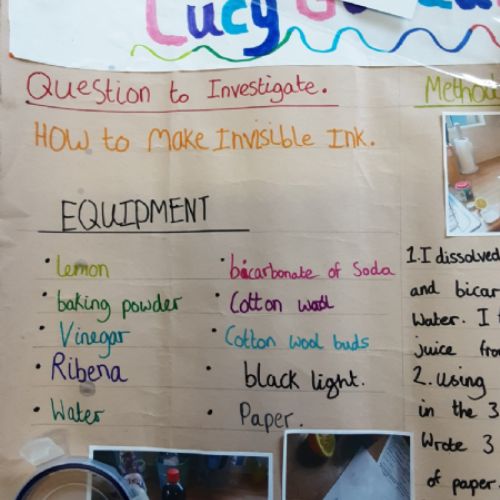 Lucy
Question to Investigate.
How to Make Invisible Ink.
EQUIPMENT
• lemon
• baking powder
• Vinegar
• Ribena
• Water
• bicarbonate of Soda
• Cotton wool
• Cotton wool buds
• black light.
• Paper.
Method
1. I dissolved
and bicar
Water. I
juice fro
2. Using
in the 3
Wrote 3
of paper.